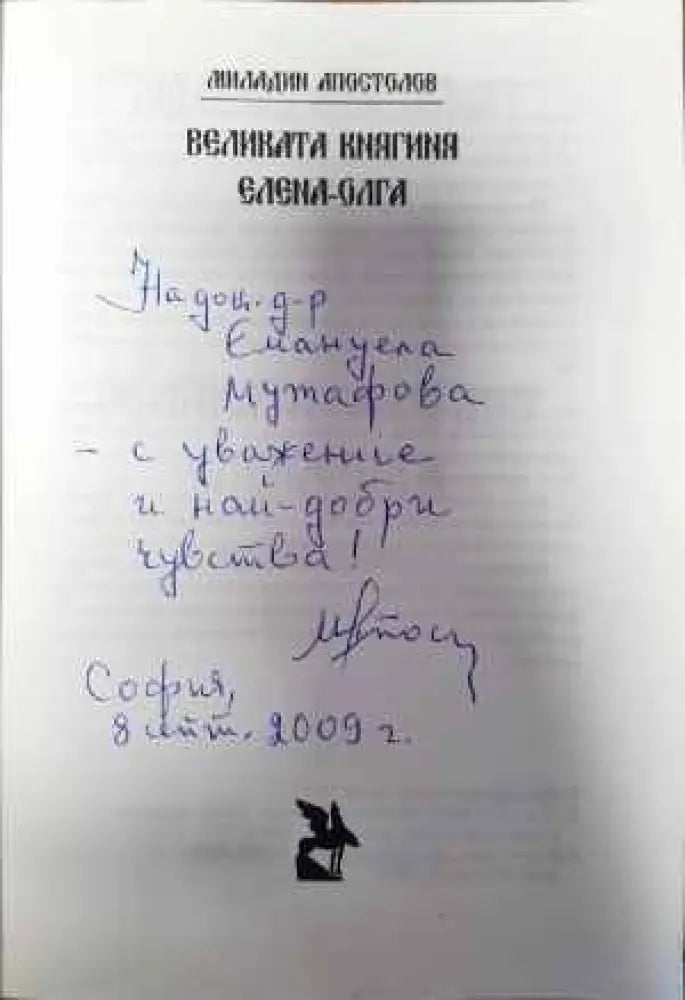 МИЛАДИН АПОСТОЛОВ
ВЕЛИКАТА КНЯГИНЯ
ЕЛЕНА-ОЛГА
На доц. д-р
Емануела
Мутафова
- с уважение
и най-добри
чувства!
София,
8 2009 г.